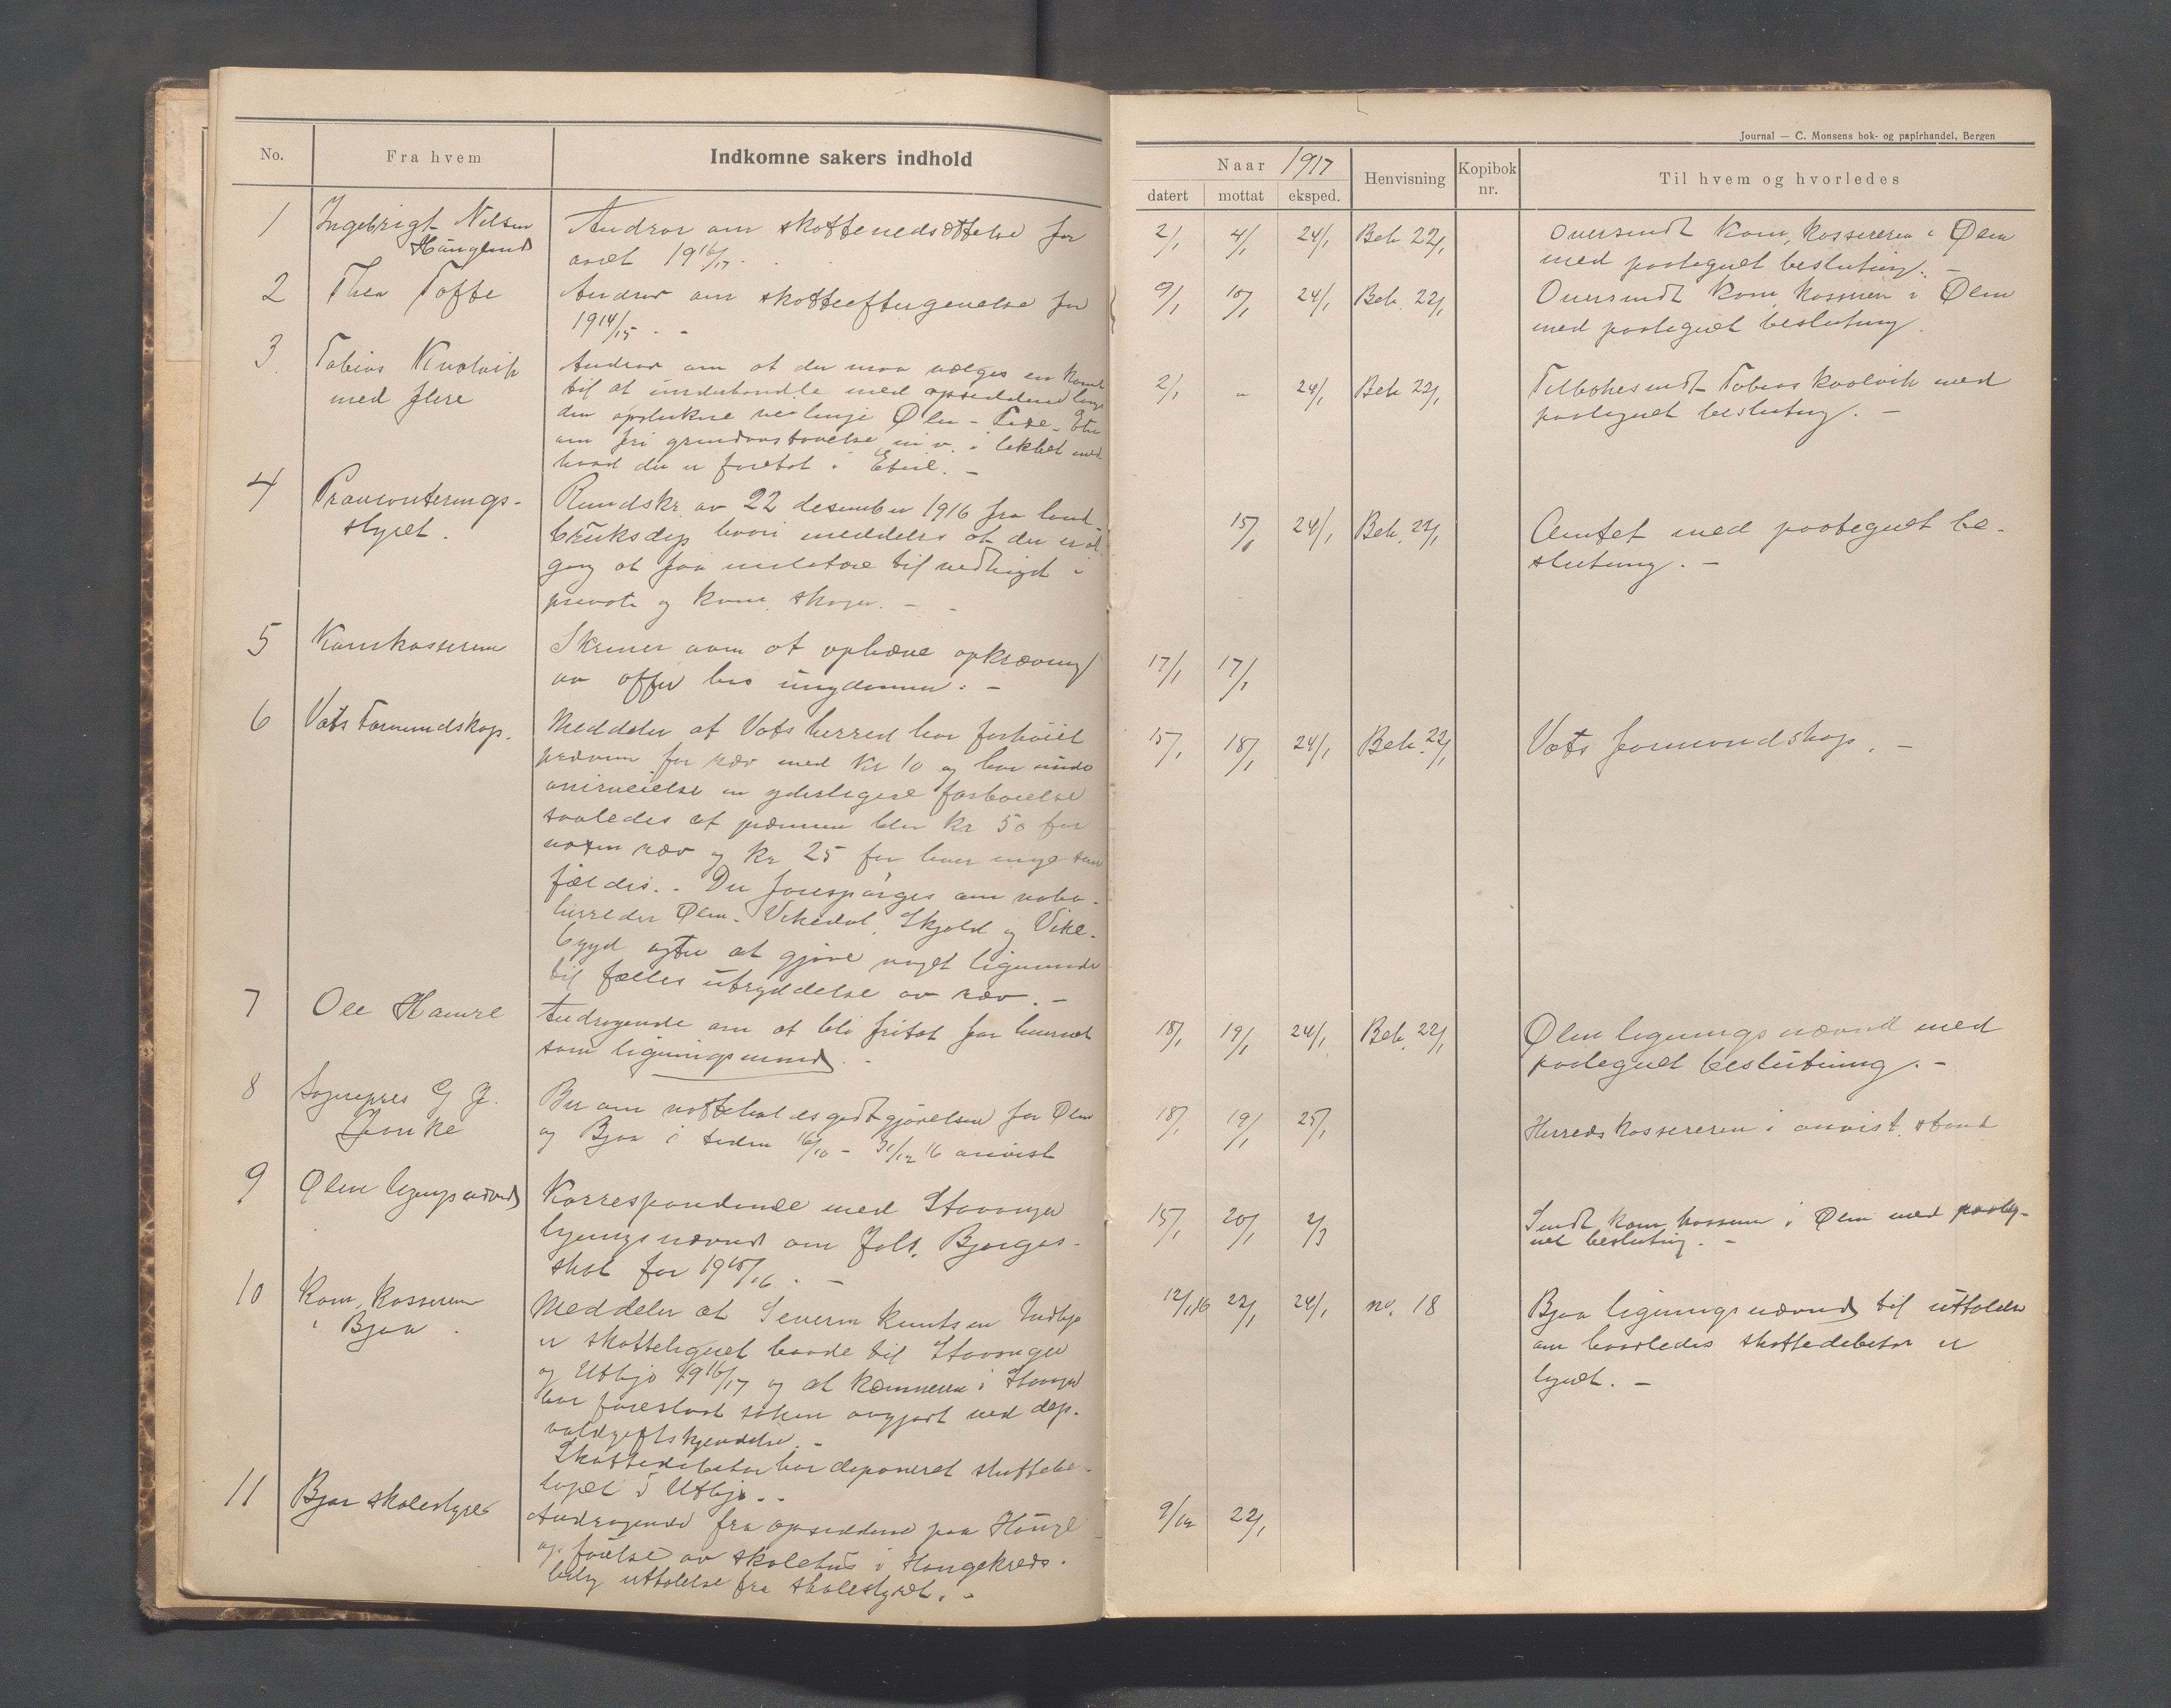 Journal — C. Monsens bok- og papirhandel, Bergen
No. Fra hvem Indkomne sakers indhold
Naar 1917 Henvisning Kopibok nr. Til hvem og hvorledes
datert mottat eksped.
1 Ingebrigt Nilsen
Haugland
Androv om skattenedsættelse for
aaret 1916/17.
2/1 4/1 24/1 Beh 22/1
Oversendt Kom. kassereren i Ølen
med paategnet beslutning. -
2 Thea Tofte
Androv om skatteeftergivelse for
1914/15. -
9/1 10/1 24/1 Beh. 22/1
Oversendt Kom. kassereren i Ølen
med paategnet beslutning.
3. Tobias Kvalvik
med flere
Androv om at der maa vælges en Komite
til at underhandle med opsidderne langs
den veilinje Ølen - - Etne
om fri grundavstaaelse m.v. i likhet med
hvad der er foretat i Etne. -
2/1 " 24/1 Beh 22/1
Tilbakesendt Tobias Kvalvik med
paategnet beslutning. -
4 Provianterings-
styret.
Rundskr. av 22 desember 1916 fra land-
bruksdep. hvori meddeles at der er ad-
gang at faa militære til vedhugst i
private og kom. skoger. -
15/1 24/1 Beh. 22/1
Amtet med paategnet be-
slutning. -
5 Komkassereren
Skriver om at ophæve opkrævning
av offer hos ungdommen. -
17/1 17/1
6 Vats Formandskap.
Meddeler at Vats herred har forhøiet
præmien for ræv med Kr 10 og har under
overveielse en yderligere forhøielse
saaledes at præmien blir kr 50 for
voksen ræv og kr 25 for hver unge som
fældes. - Der forespørges om nabo-
herreder Ølen - Vikedal, Skjold og Vike-
bygd agter at gjøre noget lignende
til fælles utryddelse av ræv. -
15/1 18/1 24/1 Beh. 22/1
Vats formandskap. -
7 Ole Hamre
Andragende om at bli fritat for hvervet
som ligningsmand. -
18/1 19/1 24/1 Beh. 22/1
Ølen ligningsnævnd med
paategnet beslutning. -
8 Sogneprest G. J.
Janke
Ber om godtgjørelsen for Ølen
og Bjoa i tiden 16/10 - 31/12 16 anvist
18/1 19/1 25/1
Herredskassereren i anvist stand
9 Ølen ligningsnævnd
Korrespondense med Stavanger
ligningsnævnd om Johs. Bjerges-
skat for 1915/16. -
15/1 20/1 2/3
Sendt kom. kasseren i Ølen med paateg-
net beslutning. -
10 Kom. kasseren
i Bjoa.
Meddeler at Severin Knutsen Indbjo
er skattelignet baade til Stavanger
og Utbjo 1916/17 og at kæmneren i Stavanger
har foreslaat saken avgjort ved dep.
voldgiftskjendelse. -
Skattedebitor har deponeret skattebe-
løpet i Utbjo. -
12/1 16 22/1 24/1 no. 18
Bjoa ligningsnævnd til uttalelse
om hvorledes skattedebitor er
lignet. -
11 Bjoa skolestyre
Andragende fra opsidderne paa Hauge
opførelse av skolehus i Haugekreds.
bilag uttalelse fra skolestyret. -
9/12 22/1